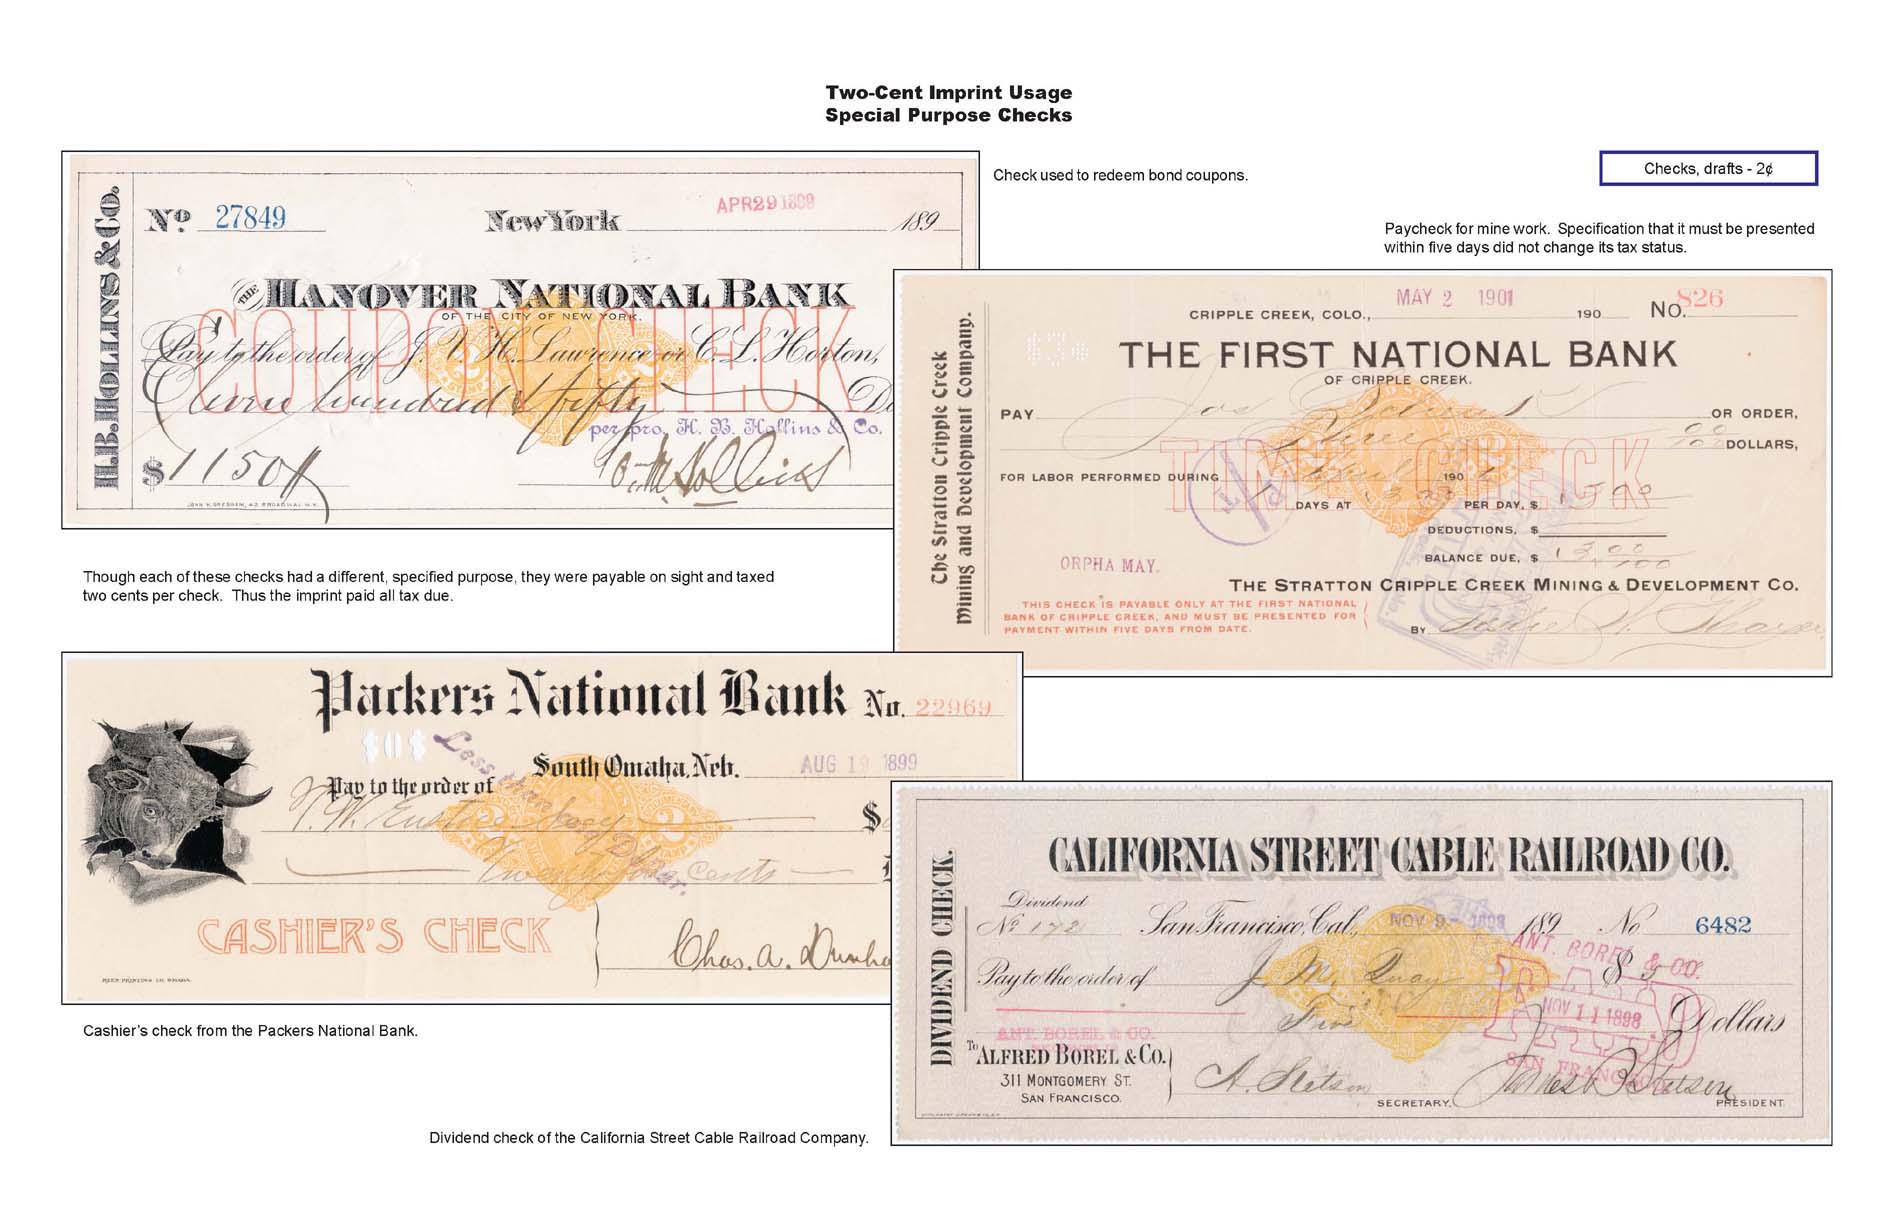 Two-Cent Imprint Usage
Special Purpose Checks
Checks, drafts - 2¢
Check used to redeem bond coupons.
H.B. HOLLINS & CO.
No 27849
New York APR 29 1899 189
THE HANOVER NATIONAL BANK
OF THE CITY OF NEW YORK.
COUPON CHECK
Pay to the order of J. V. H. Lawrence or C. L. Horton,
Eleven hundred & fifty Do
per pro, H. B. Hollins & Co.
$1150
Hollins
JOHN K. GRESHEM, 42 BROADWAY N.Y.
Paycheck for mine work. Specification that it must be presented
within five days did not change its tax status.
The Stratton Cripple Creek
Mining and Development Company.
MAY 2 1901
CRIPPLE CREEK, COLO., 190 No. 826
$3
THE FIRST NATIONAL BANK
OF CRIPPLE CREEK.
PAY Jos OR ORDER,
Three 00/100 DOLLARS,
TIME CHECK
FOR LABOR PERFORMED DURING April 190
1 DAYS AT 3.00 PER DAY, $ 3 00
DEDUCTIONS, $
BALANCE DUE, $ 3 00/100
ORPHA MAY.
THE STRATTON CRIPPLE CREEK MINING & DEVELOPMENT CO.
THIS CHECK IS PAYABLE ONLY AT THE FIRST NATIONAL
BANK OF CRIPPLE CREEK, AND MUST BE PRESENTED FOR
PAYMENT WITHIN FIVE DAYS FROM DATE.
BY
Though each of these checks had a different, specified purpose, they were payable on sight and taxed
two cents per check. Thus the imprint paid all tax due.
Packers National Bank No. 22969
$0$
Less than
Dollar.
South Omaha, Neb. AUG 19 1899
Pay to the order of
$
Twenty four cents
CASHIER'S CHECK
Chas. A. Dunha
REES PRINTING CO. OMAHA.
Cashier's check from the Packers National Bank.
DIVIDEND CHECK.
CALIFORNIA STREET CABLE RAILROAD CO.
Dividend
No 172 San Francisco, Cal., NOV 9 - 1898 189 No 6482
ANT. BOREL & CO.
Pay to the order of J. M. Quay $ 5
PAID
NOV 11 1898
SAN FRANCISCO
Five Dollars
ANT. BOREL & CO.
To ALFRED BOREL & CO.
311 MONTGOMERY ST.
SAN FRANCISCO.
A. Stetson
SECRETARY.
James B Stetson
PRESIDENT.
Dividend check of the California Street Cable Railroad Company.